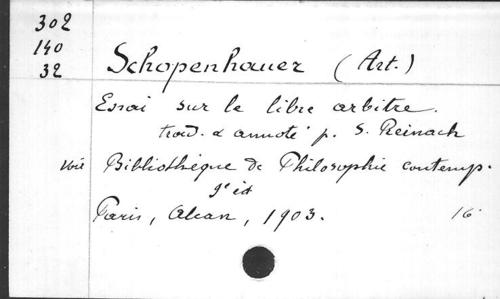 302
140
32
Schopenhauer (Art.)
Essai sur le libre arbitre.
trad. & annoté p. S. Reinach
voir Bibliothèque de Philosophie contemp.
9e éd
Paris, Alcan, 1903. 16°